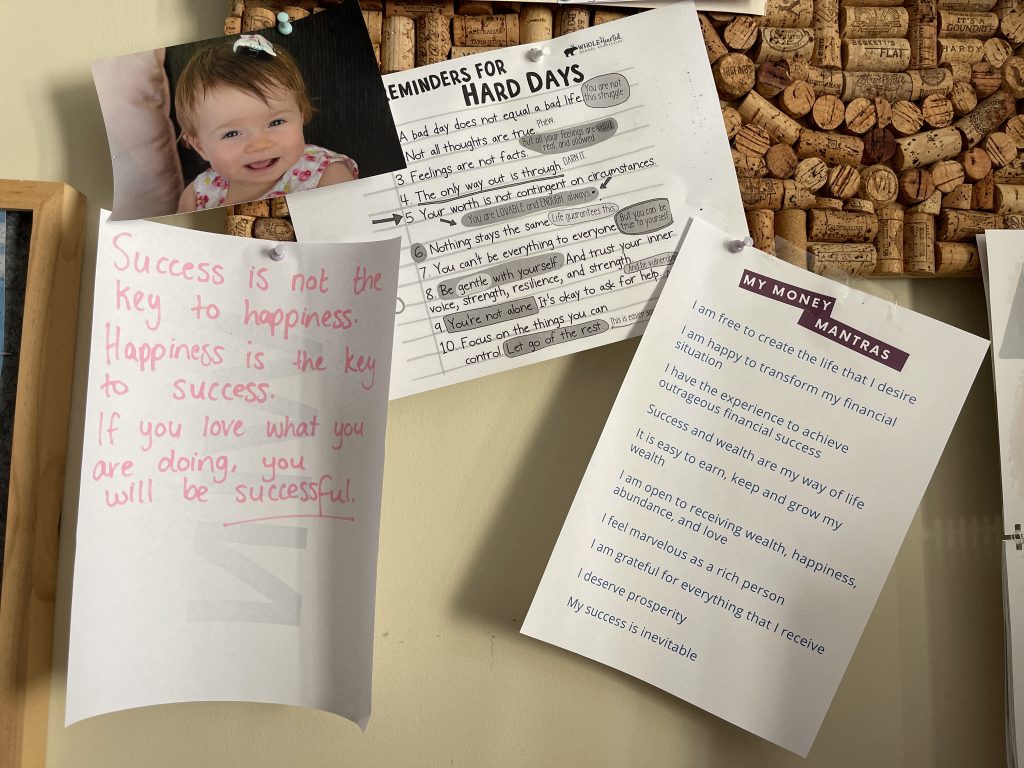 WHOLEHearted
REMINDERS FOR
HARD DAYS
A bad day does not equal a bad life. You are not
this struggle
Not all thoughts are true. Phew.
3. Feelings are not facts. But all your feelings are valid,
real, and allowed
4. The only way out is through. DARN IT.
5. Your worth is not contingent on circumstances.
You are LOVABLE and ENOUGH always
6. Nothing stays the same. Life guarantees this
7. You can't be everything to everyone. But you can be
true to yourself
8. Be gentle with yourself And trust your inner
voice, strength, resilience, and strength.
9. You're not alone. It's okay to ask for help.
10. Focus on the things you can
control. Let go of the rest. This is easier
Success is not the
key to happiness.
Happiness is the key
to success.
If you love what you
are doing, you
will be successful.
MY MONEY
MANTRAS
I am free to create the life that I desire
I am happy to transform my financial
situation
I have the experience to achieve
outrageous financial success
Success and wealth are my way of life
It is easy to earn, keep and grow my
wealth
I am open to receiving wealth, happiness,
abundance, and love
I feel marvelous as a rich person
I am grateful for everything that I receive
I deserve prosperity
My success is inevitable
BECKETT'S
FLAT
IT'S A
GOUNDREY
HARDY